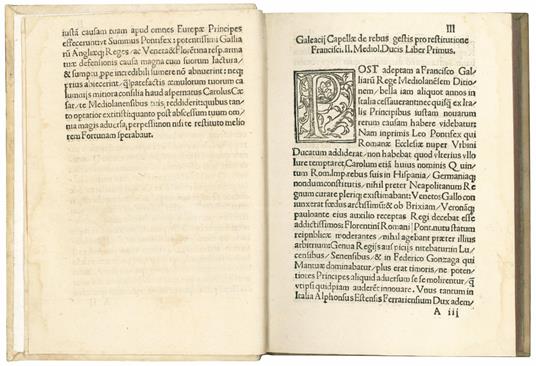 iustā causam tuam apud omnes Europæ Principes
effecerunt, vt Summus Pontifex: potentissimi Gallia
rū Angliæq; Reges, ac Veneta & Florētina resp. arma
tuæ defensionis causa magna cum suorum iactura/
& sumptu, ppe incredibili sumere nō abnuerint: nec q;
prius abiecerint, q̄ patefactis æmulorum tuorum ca
lumnijs mitiora consilia haud aspernatus Carolus Cæ
sar, te Mediolanensibus tuis, reddiderit, quibus tan-
to optatior extitisti, quanto post abscessum tuum om-
nia magis aduersa, perpessi, non nisi te restituto melio
rem Fortunam sperabant.
III
Galeacij Capellæ de rebus gestis pro restitutione
Francisci. II. Mediol. Ducis Liber Primus.
POST adeptam a Francisco Gal-
liarū Rege Mediolanēsem Ditio-
nem/ bella iam aliquot annos in
Italia cessauerant: nec quisq̄ ex Ita-
lis Principibus iustam nouarum
rerum causam habere videbatur
Nam inprimis Leo Pontifex qui
Romanæ Ecclesiæ nuper Vrbini
Ducatum addiderat/ non habebat quod vlterius vllo
iure temptaret, Carolum etiā huius nominis Quin-
tum Rom. Imp. rebus suis in Hispania/ Germaniaq;
nondum constitutis/ nihil preter Neapolitanum Re
gnum curare pleriq; existimabant: Venetos Gallo con
iunxerat fœdus arctissimū: & ob Brixiam/ Veronāq;
paulo ante eius auxilio receptas Regi decebat esse
addictissimos: Florentini Romani Pont. nutu statum
reipublicæ moderantes/ nihil agebant præter illius
arbitrium: Genua Regijs auspicijs nitebatur: in Lu-
censibus/ Senensibus/ & in Federico Gonzaga qui
Mantuæ dominabatur/ plus erat timoris/ ne poten-
tiores Principes aliquid aduersum se se molirentur/ q̄
vt ipsi quidpiam auderēt innouare. Vnus tantum in
Italia Alphonsus Estensis Ferrariensium Dux adem/
A iij